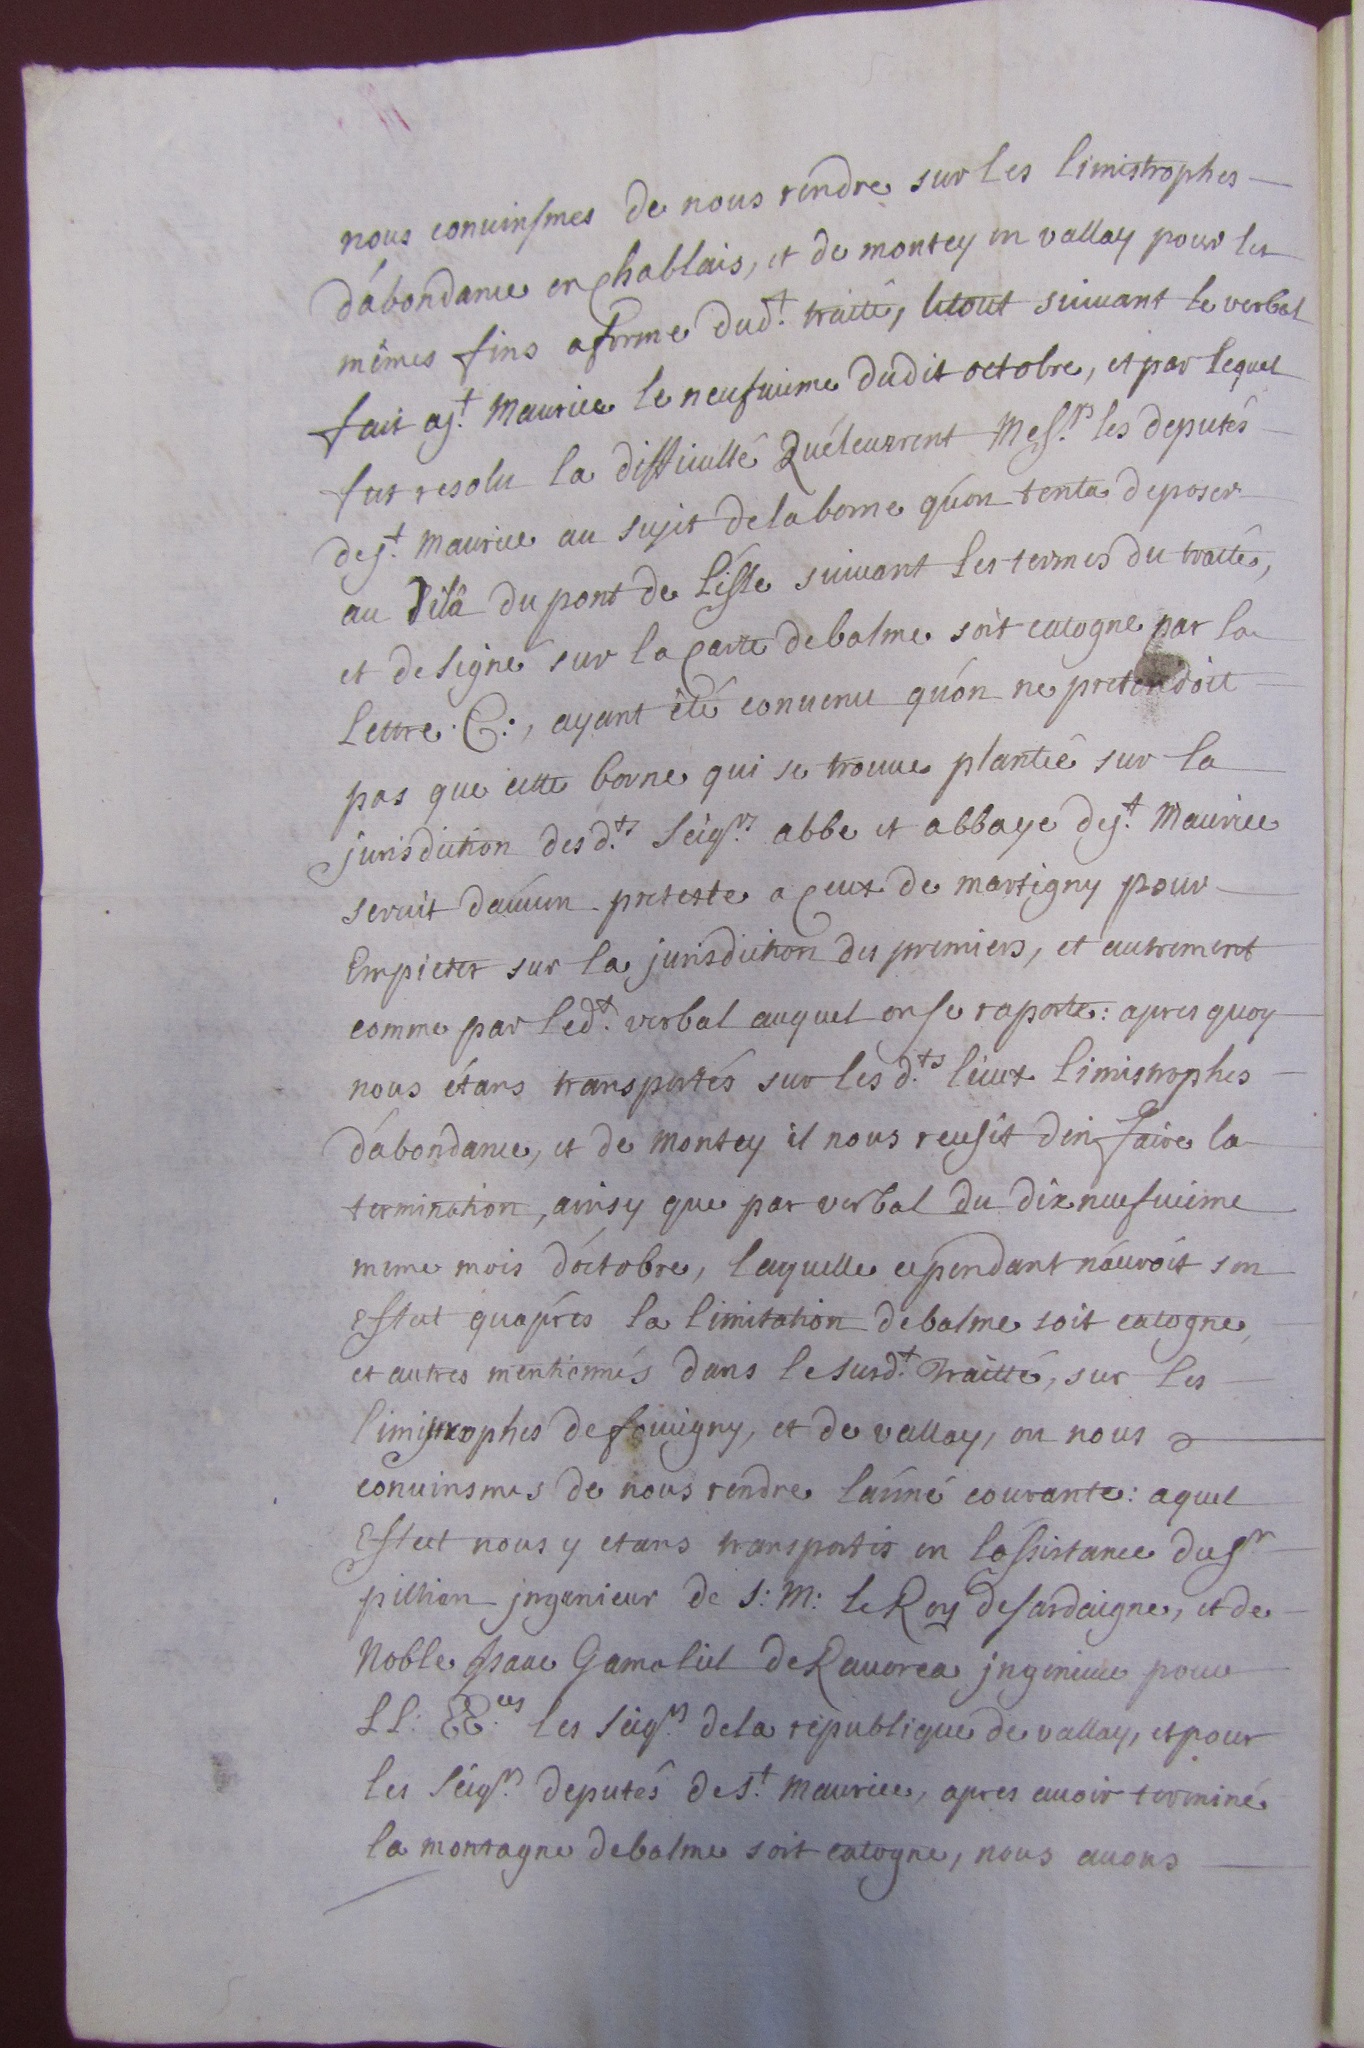 nous conuinsmes de nous rendre sur les limistrophes
d'abondance en chablais, et de montey en vallay pour les
mêmes fins a forme dud.t traitté, le tout suiuant le verbal
fait a s.t Maurice le neufuieme dudit octobre, et par lequel
fut resolu la difficulté quéleuerent Mess.rs les deputés
de s.t Maurice au sujet de la borne qu'on tenta de poser
au dela du pont de Lisle suiuant les termes du traité,
et designé sur la carte de balme soit catogne par la
Lettre C:, ayant été conuenu qu'on ne pretendoit
pas que cette borne qui se trouue plantée sur la
jurisdiction des d.ts Seig.rs abbe et abbaye de s.t Maurice
seruit d'aucun pretexte a ceux de martigny pour
Empieter sur la jurisdiction des premiers, et autrement
comme par led.t verbal auquel on se raporte: apres quoy
nous étans transportés sur les d.ts lieux limistrophes
d'abondance, et de montey il nous reusit d'en faire la
termination, ainsy que par verbal du dix neufuieme
meme mois d'octobre, laquelle cependant n'auroit son
Effect qu'aprés la limitation de balme soit catogne,
et autres mentionnés dans le surd.t traitté, sur les
limistrophes de foucigny, et de vallay, ou nous
conuinsmes de nous rendre l'anné courante: a quel
Effect nous y etans transportés en l'assistance du s.r
jngenieur de S: M: le Roy de sardaigne, et de
Noble jsaac Gamaliel de Rauorea jngenieur pour
LL: EE.ces les seig.rs de la republique de vallay, et pour
les seig.rs deputés de s.t Maurice, apres auoir terminé
la montagne de balme soit catogne, nous auons